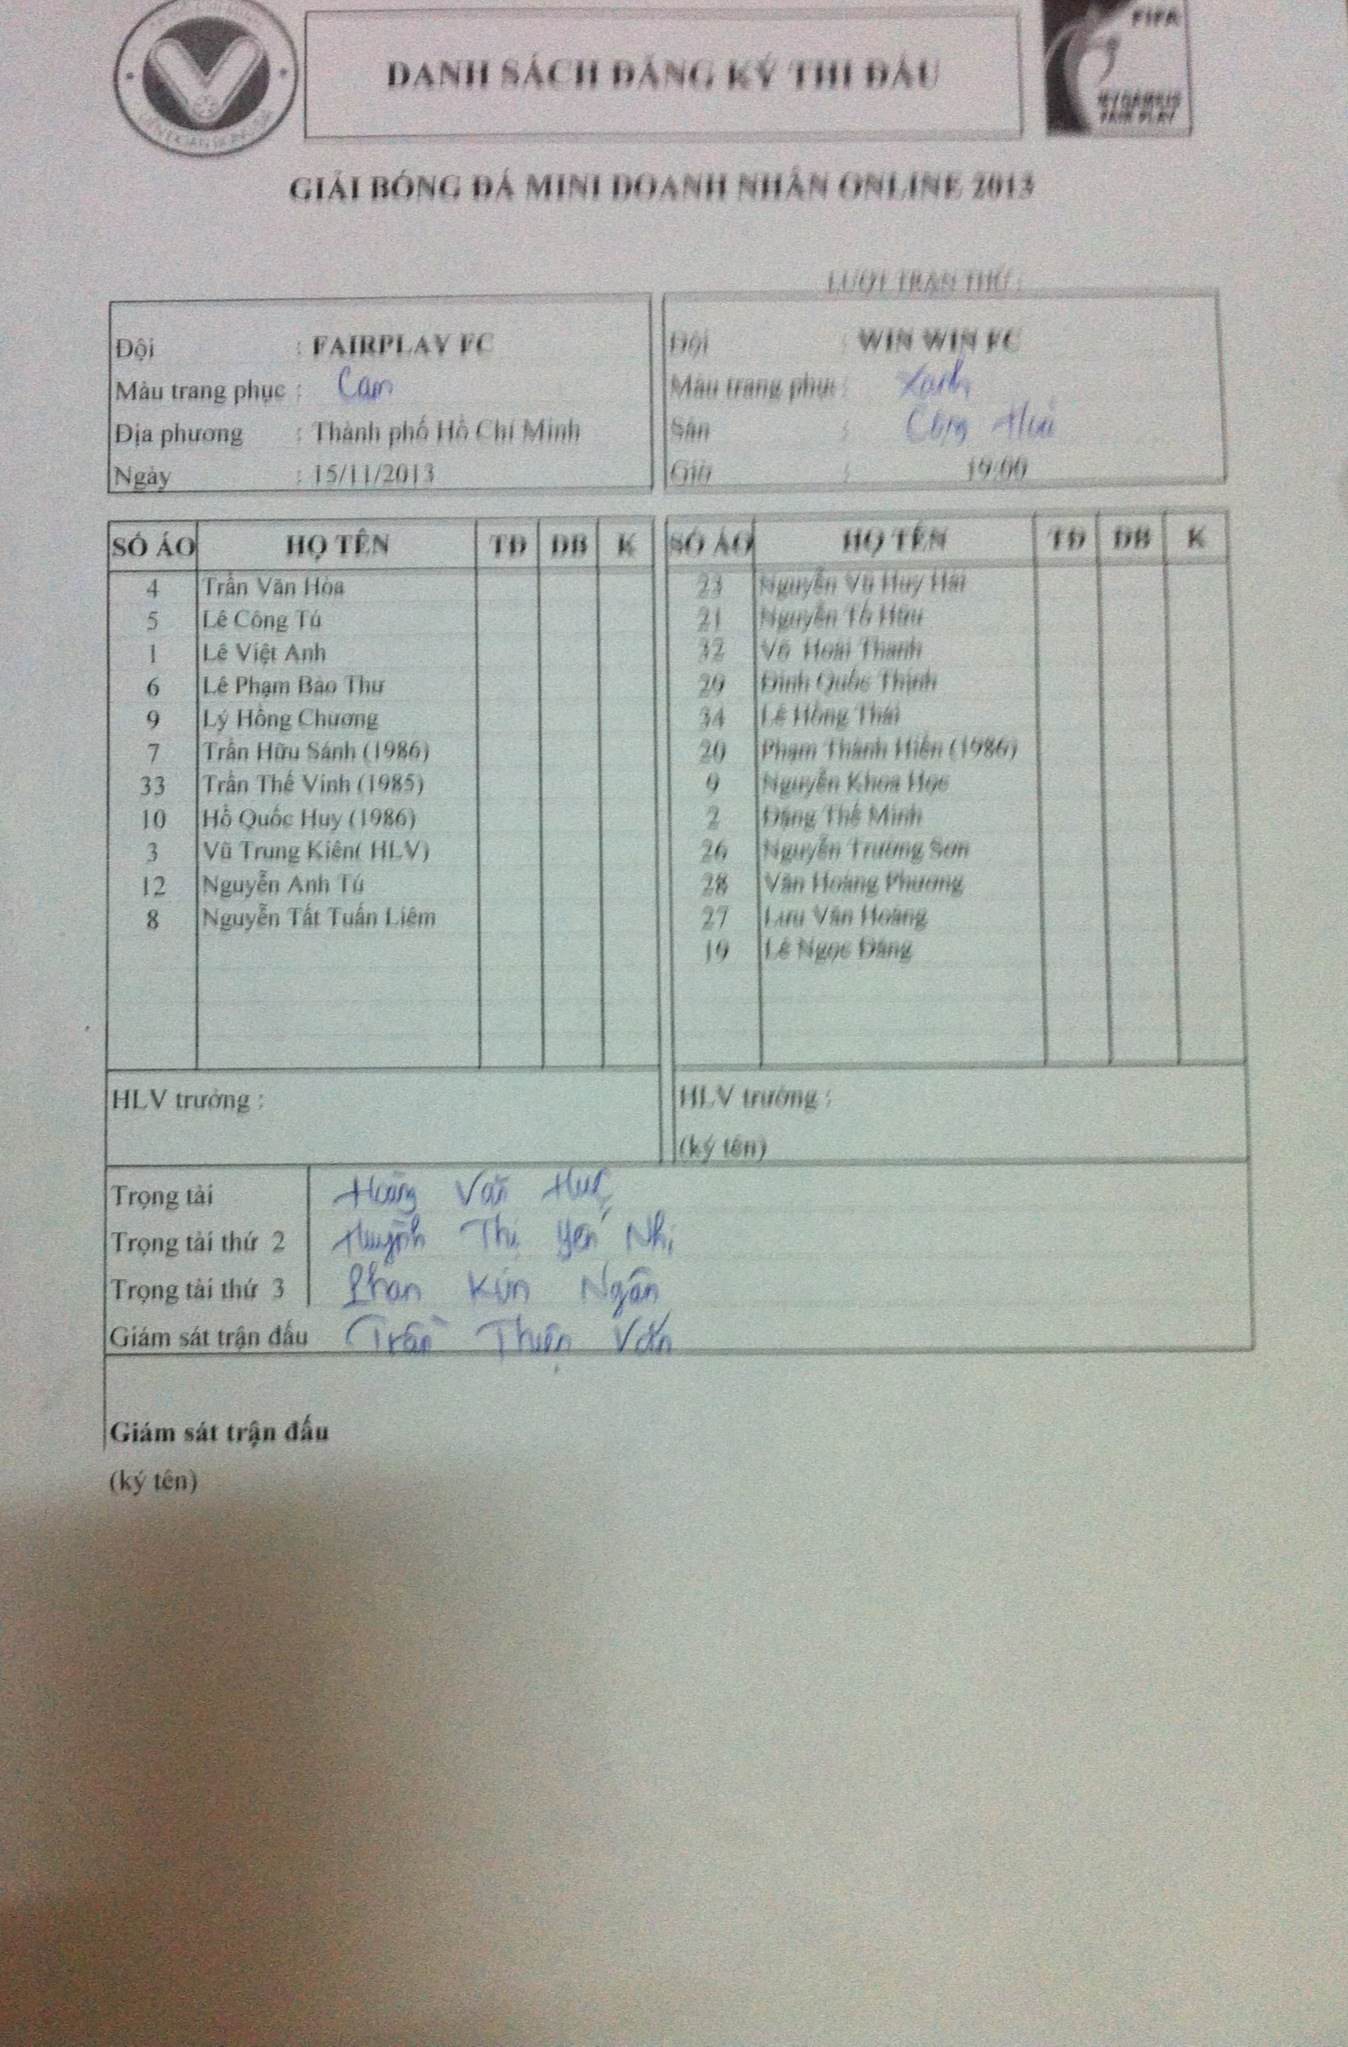 DANH SÁCH ĐĂNG KÝ THI ĐẤU
FIFA
MY GAME IS
FAIR PLAY
GIẢI BÓNG ĐÁ MINI DOANH NHÂN ONLINE 2013
LƯỢT TRẬN THỨ :
Đội : FAIRPLAY FC
Màu trang phục : Cam
Địa phương : Thành phố Hồ Chí Minh
Ngày : 15/11/2013
Đội : WIN WIN FC
Màu trang phục : Xanh
Sân : Cộng Hoà
Giờ : 19:00
SỐ ÁO HỌ TÊN TĐ DB K
4 Trần Văn Hòa
5 Lê Công Tú
1 Lê Việt Anh
6 Lê Phạm Bảo Thư
9 Lý Hồng Chương
7 Trần Hữu Sánh (1986)
33 Trần Thế Vinh (1985)
10 Hồ Quốc Huy (1986)
3 Vũ Trung Kiên( HLV)
12 Nguyễn Anh Tú
8 Nguyễn Tất Tuấn Liêm
HLV trưởng :
SỐ ÁO HỌ TÊN TĐ DB K
23 Nguyễn Vũ Huy Hải
21 Nguyễn Tố Hữu
32 Võ Hoài Thanh
29 Đinh Quốc Thịnh
34 Lê Hồng Thái
20 Phạm Thành Hiển (1986)
9 Nguyễn Khoa Học
2 Đặng Thế Minh
26 Nguyễn Trường Sơn
28 Văn Hoàng Phương
27 Lưu Văn Hoàng
19 Lê Ngọc Đăng
HLV trưởng :
(ký tên)
Trọng tài Hoàng Văn
Trọng tài thứ 2 Huỳnh Thị Yến Nhi
Trọng tài thứ 3 Phan Kim Ngân
Giám sát trận đấu Trần Thiện Văn
Giám sát trận đấu
(ký tên)